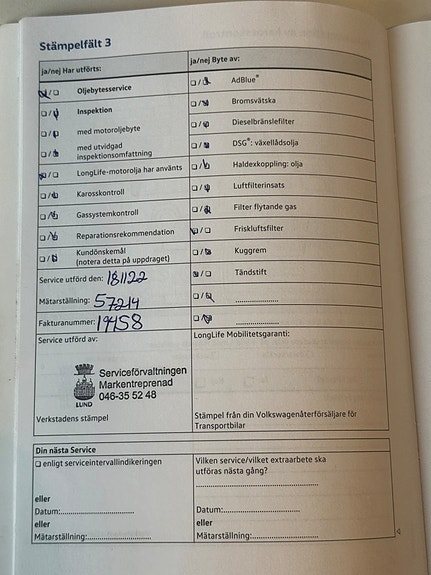 Stämpelfält 3
ja/nej Har utförts:
Oljebytesservice
Inspektion
med motoroljebyte
med utvidgad
inspektionsomfattning
LongLife-motorolja har använts
Karosskontroll
Gassystemkontroll
Reparationsrekommendation
Kundönskemål
(notera detta på uppdraget)
Service utförd den: 181122
Mätarställning: 57214
Fakturanummer: 19458
Service utförd av:
Serviceförvaltningen
Markentreprenad
046-35 52 48
LUND
Verkstadens stämpel
ja/nej Byte av:
AdBlue®
Bromsvätska
Dieselbränslefilter
DSG®: växellådsolja
Haldexkoppling: olja
Luftfilterinsats
Filter flytande gas
Friskluftsfilter
Kuggrem
Tändstift
LongLife Mobilitetsgaranti:
Stämpel från din Volkswagenåterförsäljare för
Transportbilar
Din nästa Service
enligt serviceintervallindikeringen
eller
Datum:
eller
Mätarställning:
Vilken service/vilket extraarbete ska
utföras nästa gång?
Datum:
eller
Mätarställning: